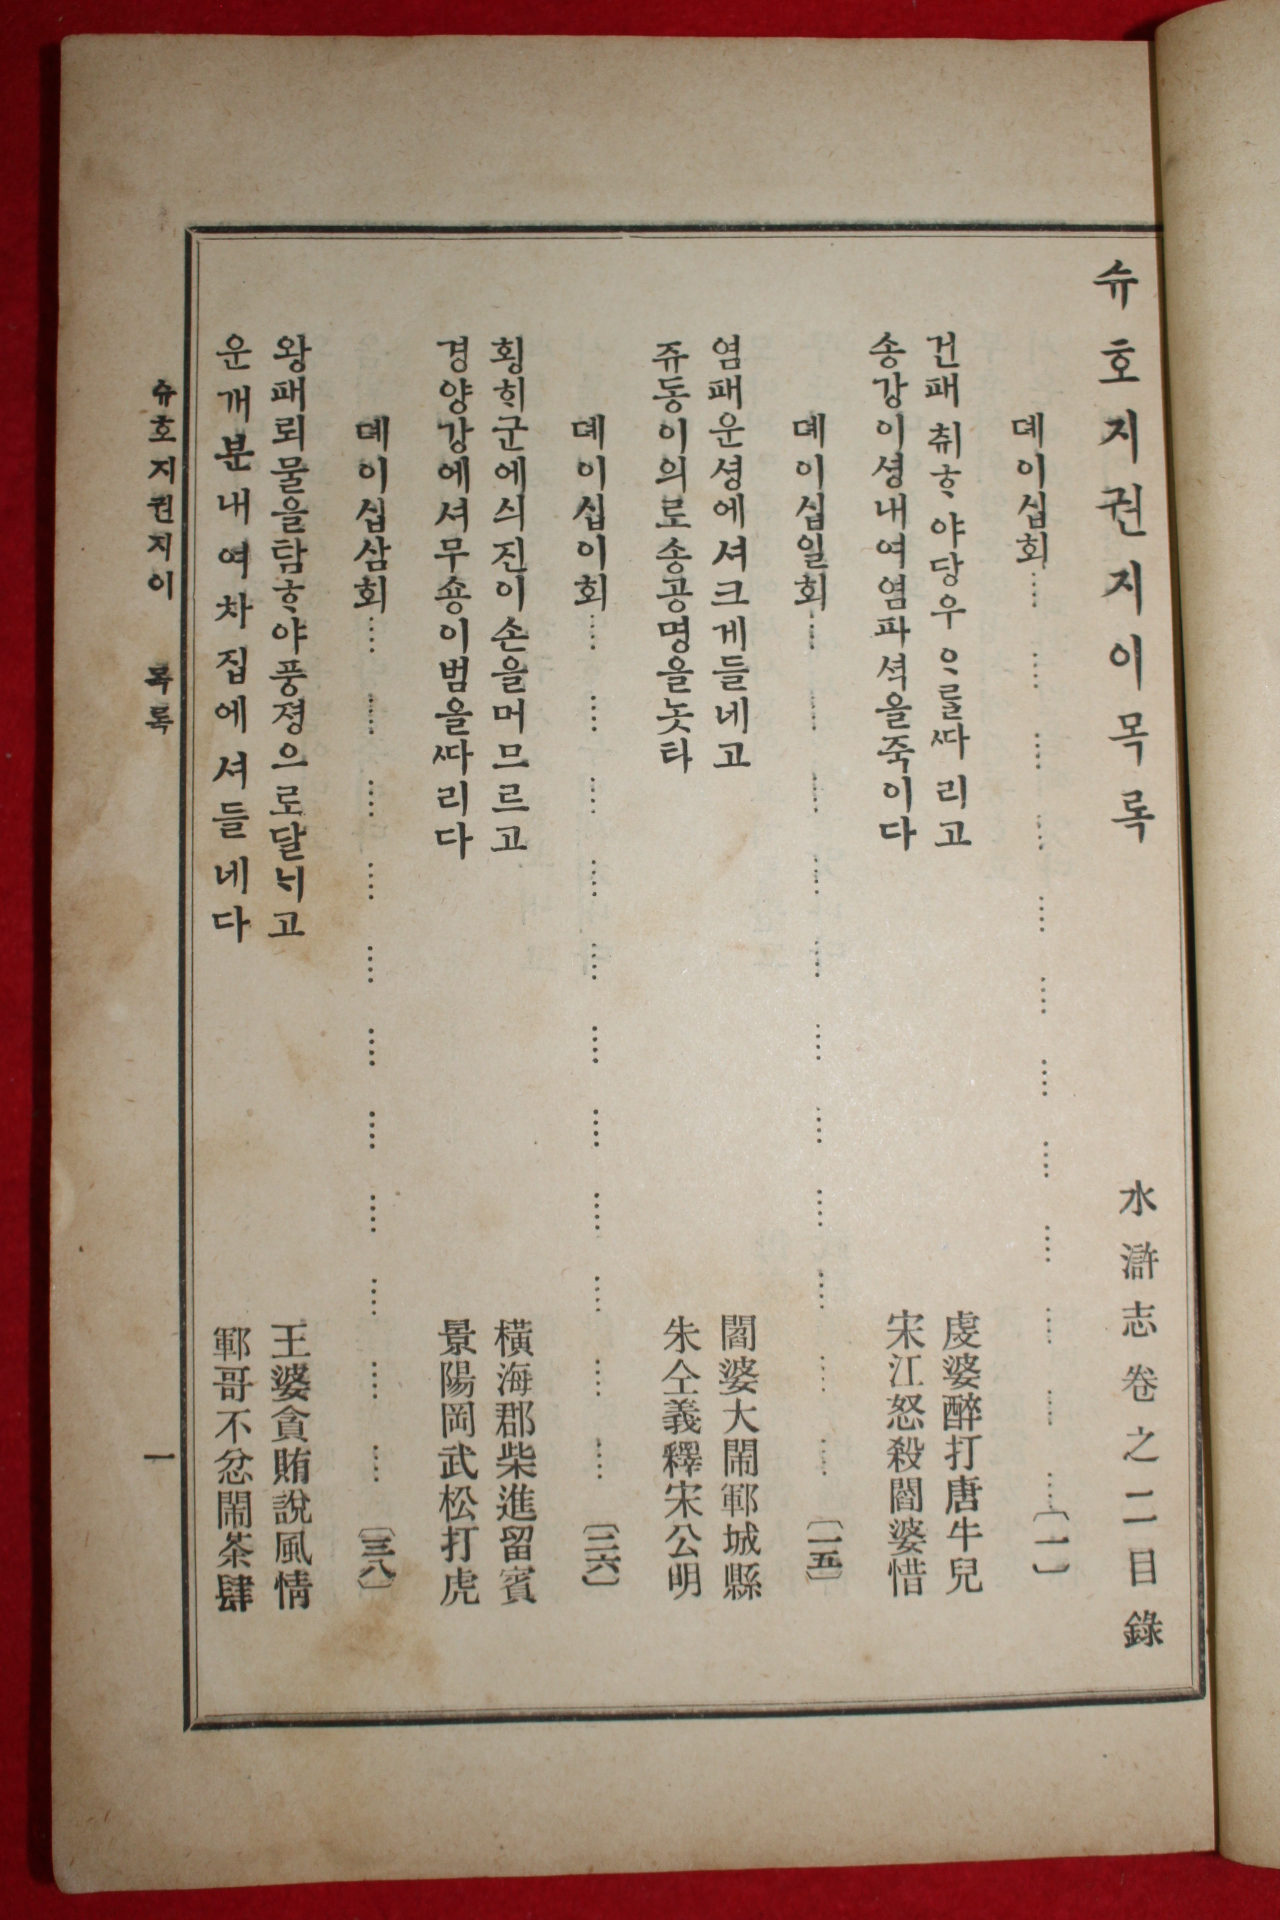 슈호지권지이목록 水滸志卷之二目錄
뎨이십회 〔一〕
건패취ᄒᆞ야당우ᄋᆞ를ᄯᅡ리고 虔婆醉打唐牛兒
송강이셩내여염파셕을죽이다 宋江怒殺閻婆惜
뎨이십일회 〔一五〕
염패운셩에셔크게들네고 閻婆大閙鄆城縣
쥬동이의로송공명을놋타 朱仝義釋宋公明
뎨이십이회 〔二六〕
횡ᄒᆡ군에싀진이손을머므르고 橫海郡柴進留賓
경양강에셔무숑이범을ᄯᅡ리다 景陽岡武松打虎
뎨이십삼회 〔三八〕
왕패뢰물을탐ᄒᆞ야풍졍으로달ᄂᆡ고 王婆貪賄說風情
운개분내여차집에셔들네다 鄆哥不忿閙茶肆
슈호지권지이 목록 一